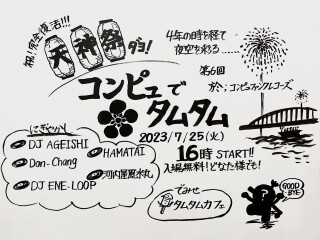 祝!完全復活!!!
天神祭
ダヨ!
4年の時を経て
夜空を彩る……
第6回
於:コンピュファンクレコーズ
コンピュで
タムタム
2023/7/25(火)
16時START!!
入場無料!どなた様でも!
にぎやかし
DJ AGEISHI
HAMATAI
Don-Chang
河内屋風水丸
DJ ENE-LOOP
でみせ
タムタムカフェ
GOOD
BYE